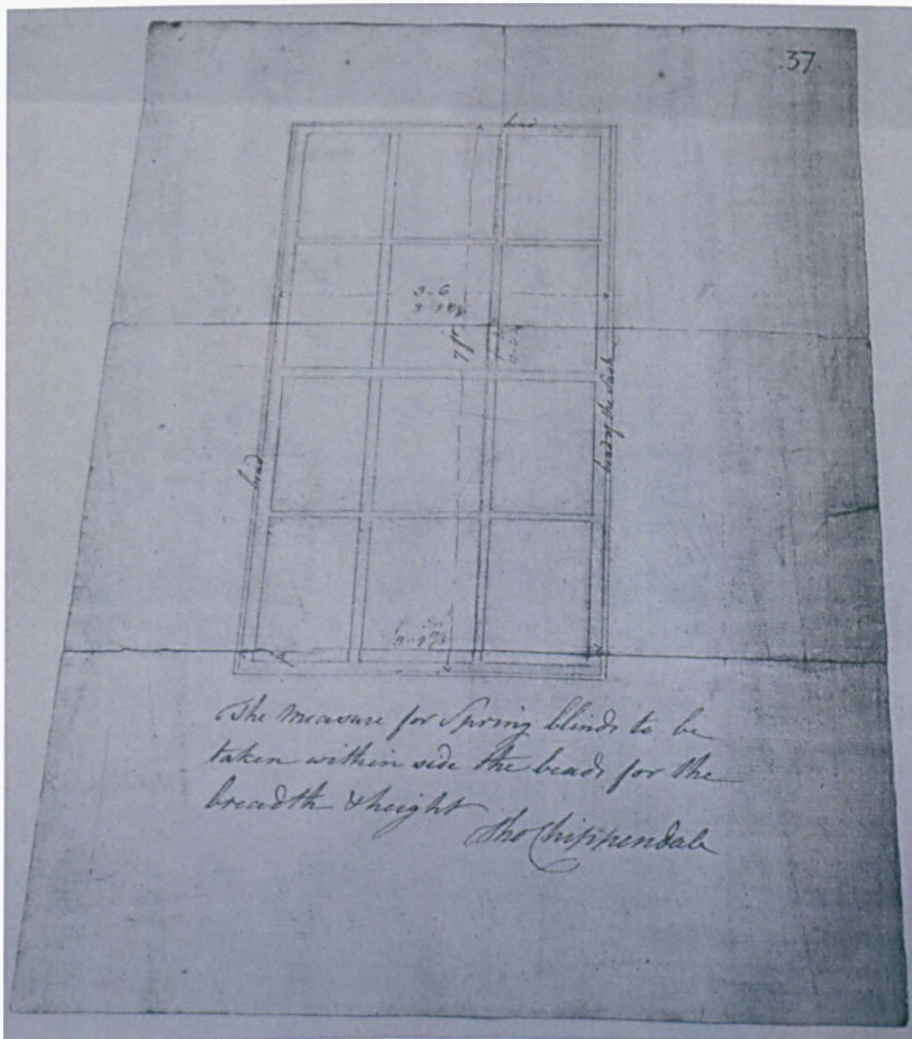 .37.
bead
3-6
7 f
bead of the Sash
bead
The measure for Spring blinds to be
taken within side the beads for the
breadth & height
Tho Chippendale